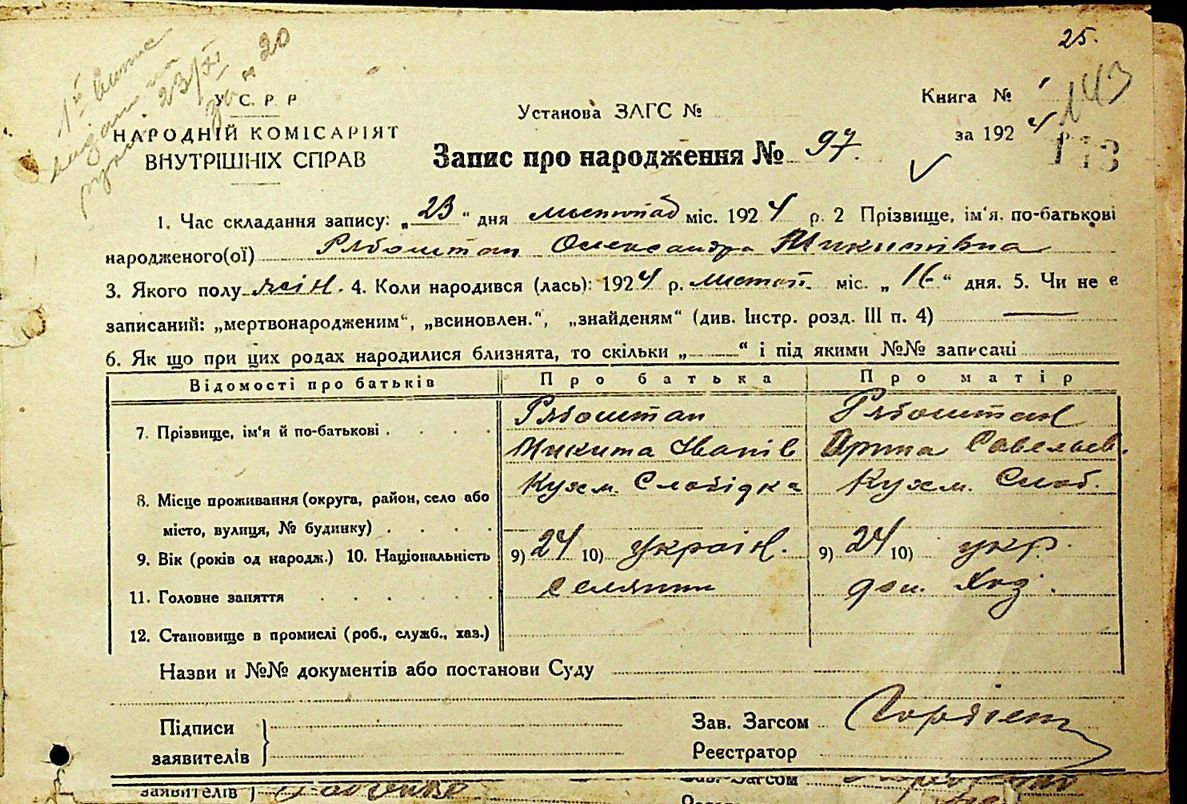 25.
1й витяг
23/XI
20
У С Р Р
НАРОДНІЙ КОМІСАРІЯТ
ВНУТРІШНІХ СПРАВ
Установа ЗАГС №
Книга №
143
за 1924 р.
113
Запис про народження № 97.
1. Час складання запису: „23“ дня листопад міс. 1924 р. 2 Прізвище, ім'я. по-батькові
народженого(ої) Рябоштан Олександра Микитівна
3. Якого полу жін. 4. Коли народився (лась): 1924 р. листоп. міс. „16“ дня. 5. Чи не є
записаний: „мертвонародженим“, „всиновлен.“, „знайденям“ (див. Інстр. розд. III п. 4) —
6. Як що при цих родах народилися близнята, то скільки „—“ і під якими №№ записані
Відомості про батьків Про батька Про матір
7. Прізвище, ім'я й по-батькові Рябоштан Рябоштан
Микита Іванів Орина Савельев.
8. Місце проживання (округа, район, село або Кухм. Слобідка Кухм. Слоб.
місто, вулиця, № будинку)
9. Вік (років од народж.) 10. Національність 9) 24 10) україн. 9) 24 10) укр.
11. Головне заняття селянин дом. хаз.
12. Становище в промислі (роб., служб., хаз.)
Назви и №№ документів або постанови Суду
Підписи
заявителів
Зав. Загсом
Реєстратор
заявителів
Зав. Загсом